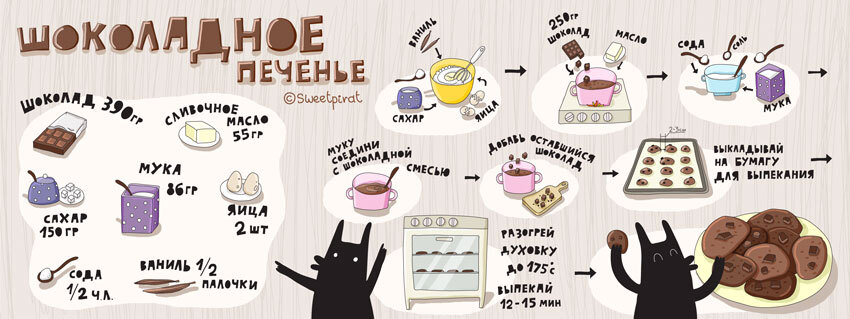 ШОКОЛАДНОЕ
ПЕЧЕНЬЕ
©Sweetpirat
ШОКОЛАД 390ГР
СЛИВОЧНОЕ
МАСЛО
55ГР
МУКА
86ГР
САХАР
150ГР
ЯИЦА
2 ШТ
СОДА
1/2 Ч.Л.
ВАНИЛЬ 1/2
ПАЛОЧКИ
ВАНИЛЬ
САХАР
ЯИЦА
250ГР
ШОКОЛАД
МАСЛО
СОДА
СОЛЬ
МУКА
МУКУ
СОЕДИНИ
С ШОКОЛАДНОЙ
СМЕСЬЮ
ДОБАВЬ ОСТАВШИЙСЯ
ШОКОЛАД
2-3см
ВЫКЛАДЫВАЙ
НА БУМАГУ
ДЛЯ ВЫПЕКАНИЯ
РАЗОГРЕЙ
ДУХОВКУ
ДО 175°С
ВЫПЕКАЙ
12-15 МИН